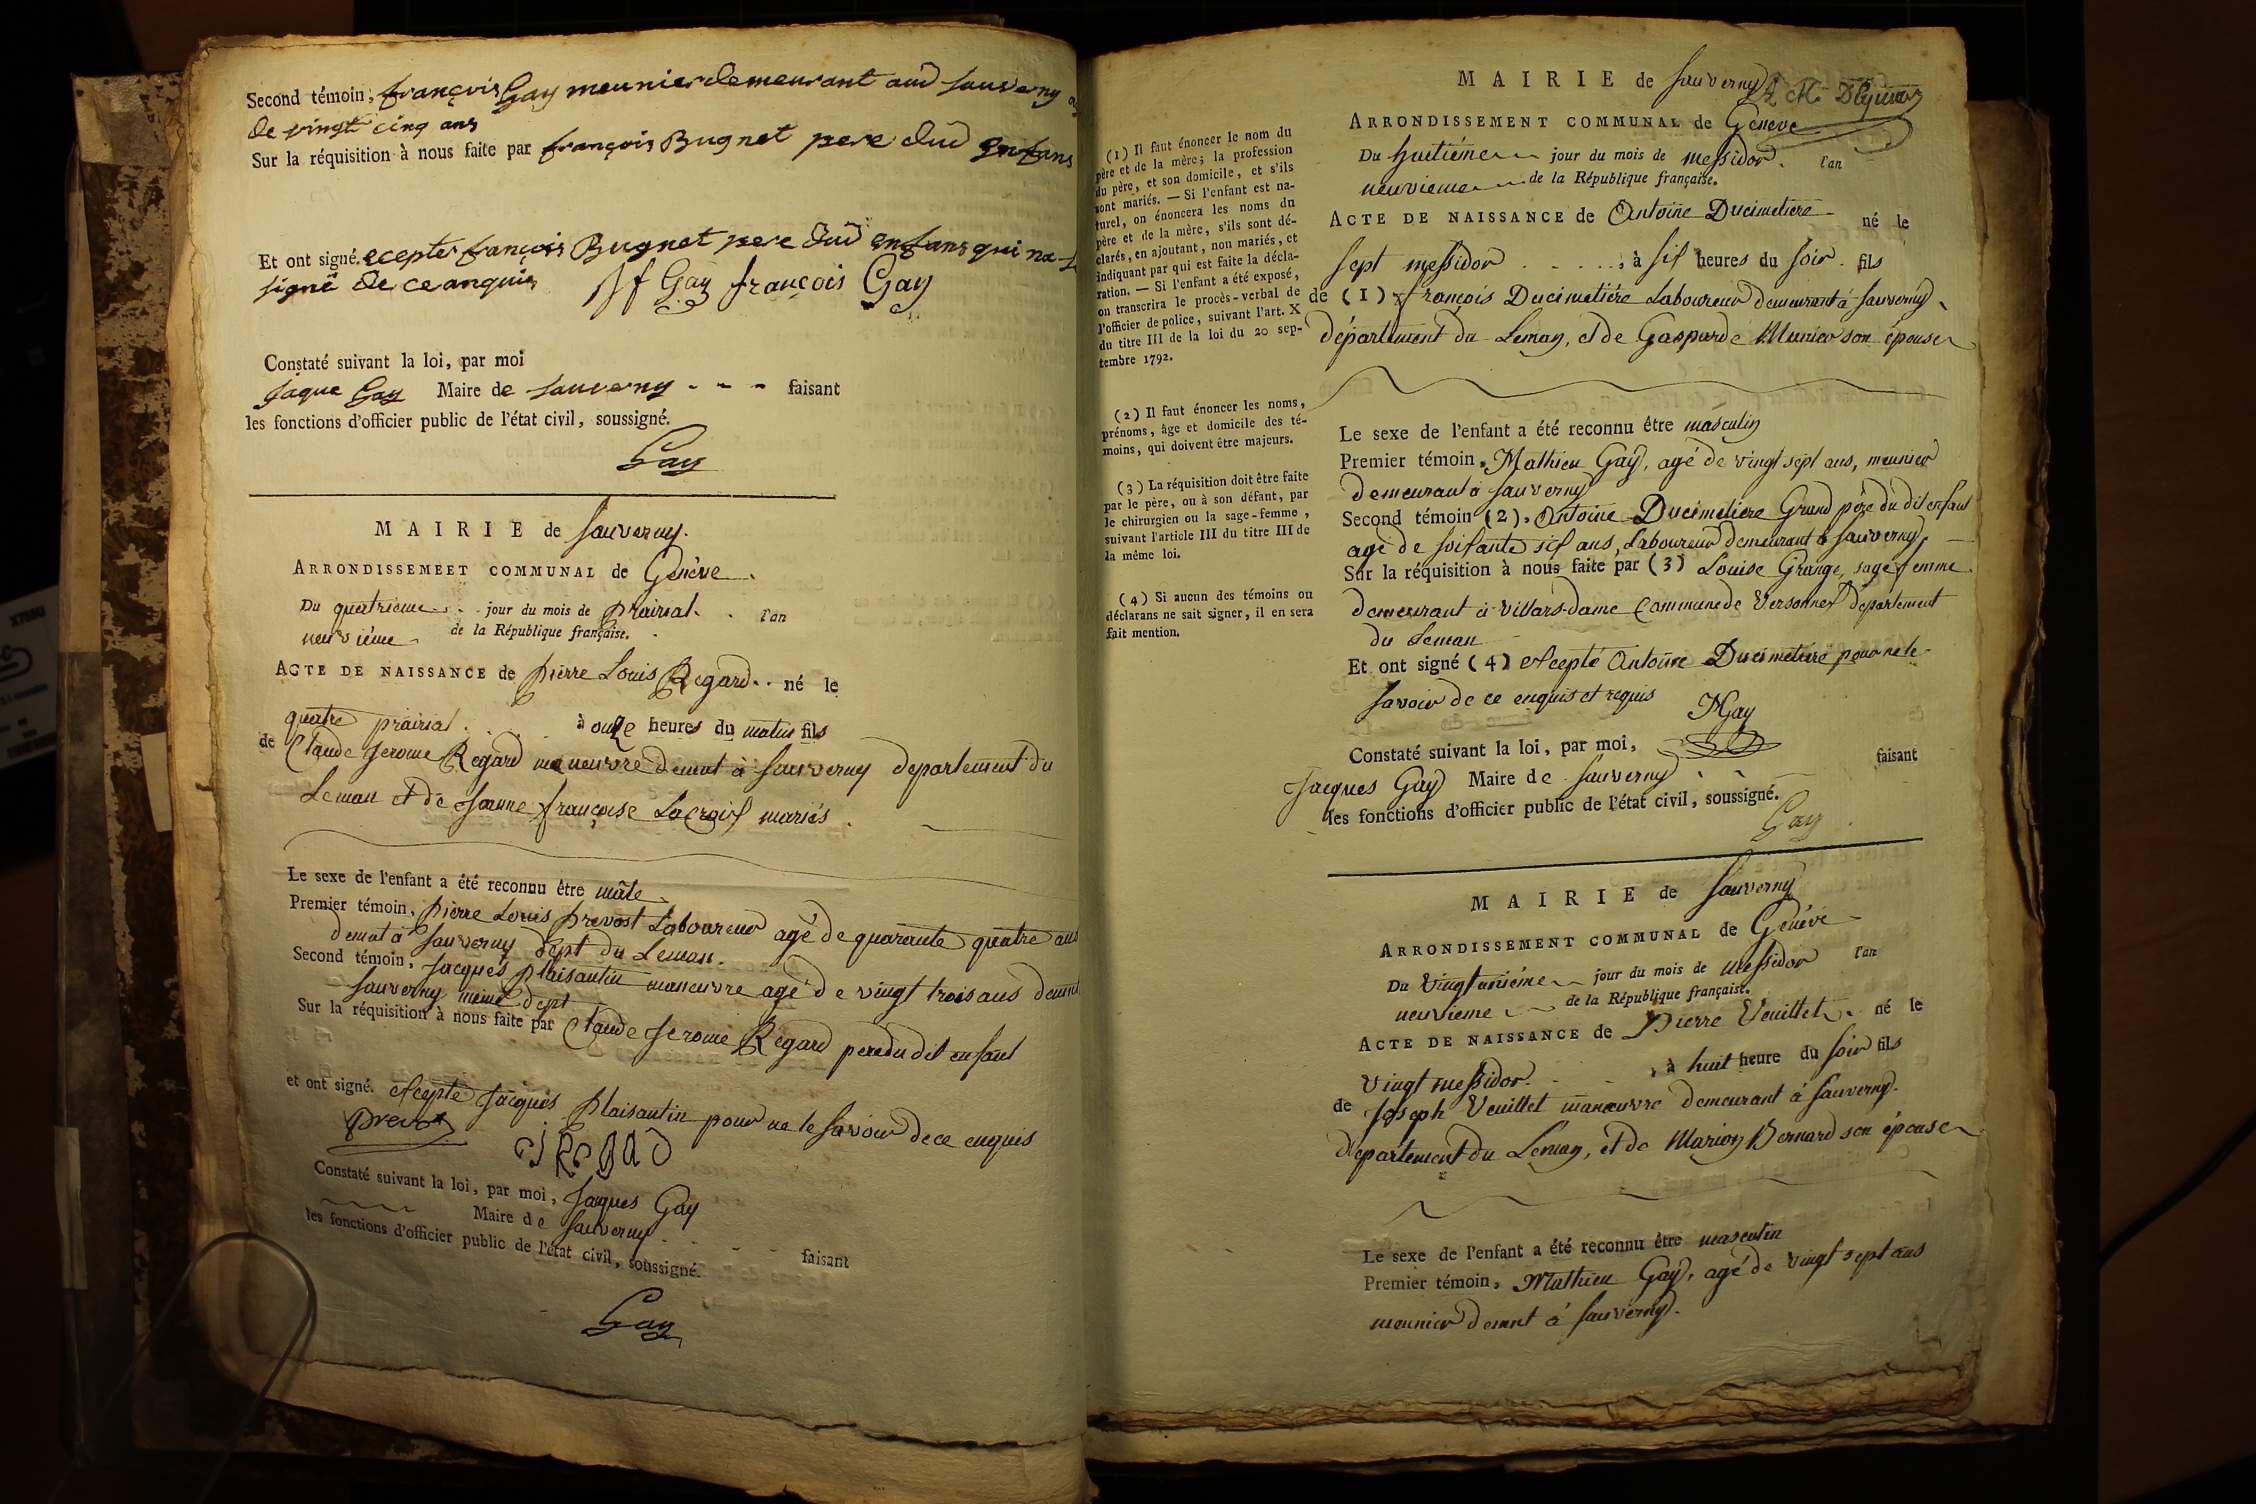 Second témoin, françois Gay meunier demeurant aud sauverny
de vingt cinq ans
Sur la réquisition à nous faite par françois Bugnet pere dud enfans
Et ont signé. ecepter françois Bugnet pere dud enfans qui na
signé de ce anquis
Gay françois Gay
Constaté suivant la loi, par moi
Jaque Gay Maire de sauverny - - - faisant
les fonctions d'officier public de l'état civil, soussigné.
Gay
MAIRIE de Sauverny.
ARRONDISSEMEET COMMUNAL de Genève.
Du quatrieme jour du mois de prairial. l'an
neuvième de la République française.
ACTE DE NAISSANCE de pierre Louis Regard . . né le
quatre prairial . à onze heures du matin fils
de Claude Jerome Regard maneuvre demnt à Sauverny departement du
Leman et de Jeanne françoise Lacroix mariés
Le sexe de l'enfant a été reconnu être mâle
Premier témoin, pierre Louis prevost Laboureur agé de quarante quatre ans
demnt à Sauverny dept du Leman.
Second témoin, Jacques plaisantin maneuvre agé de vingt trois ans demnt
Sauverny meme dept
Sur la réquisition à nous faite par Claude Jerome Regard pere du dit enfant
et ont signé. excepté Jacques plaisantin pour ne le savoir de ce enquis
prevost
Constaté suivant la loi, par moi, Jaques Gay
Maire de Sauverny - - - - faisant
les fonctions d'officier public de l'état civil, soussigné.
Gay
MAIRIE de Sauverny
ARRONDISSEMENT COMMUNAL de Geneve
Du huitiéme jour du mois de messidor. l'an
neuvieme de la République française.
ACTE DE NAISSANCE de Antoine Ducimetiere né le
sept messidor . . . . . , à six heures du soir. fils
de (1) françois Ducimetiére Laboureur demeurant à sauverny,
département du Leman, et de Gasparde Munier son épouse
Le sexe de l'enfant a été reconnu être masculin
Premier témoin, Mathieu Gay, agé de vingt sept ans, meunier
demeurant à sauverny
Second témoin (2), Antoine Ducimetiere Grand pére du dit enfant
agé de soixante six ans, Laboureur demeurant à sauverny,
Sur la réquisition à nous faite par (3) Louise Grange, sage femme
demeurant à Villars-dame Commune de Versonnex département
du Leman
Et ont signé (4) excepté Antoine Ducimetiere pour ne le
savoir de ce enquis et requis
MGay
Constaté suivant la loi, par moi, faisant
Jacques Gay Maire de Sauverny
les fonctions d'officier public de l'état civil, soussigné.
Gay
(1) Il faut énoncer le nom du
père et de la mère; la profession
du père, et son domicile, et s'ils
sont mariés. — Si l'enfant est na-
turel, on énoncera les noms du
père et de la mère, s'ils sont dé-
clarés, en ajoutant, non mariés, et
indiquant par qui est faite la décla-
ration. — Si l'enfant a été exposé,
on transcrira le procès-verbal de
l'officier de police, suivant l'art. X
du titre III de la loi du 20 sep-
tembre 1792.
(2) Il faut énoncer les noms,
prénoms, âge et domicile des té-
moins, qui doivent être majeurs.
(3) La réquisition doit être faite
par le père, ou à son défaut, par
le chirurgien ou la sage-femme,
suivant l'article III du titre III de
la même loi.
(4) Si aucun des témoins ou
déclarans ne sait signer, il en sera
fait mention.
MAIRIE de Sauverny
ARRONDISSEMENT COMMUNAL de Genève
Du Vingtuniéme jour du mois de messidor l'an
neuvieme de la République française.
ACTE DE NAISSANCE de Pierre Veuillet . né le
vingt messidor. , à huit heure du soir fils
de Joseph Veuillet manœuvre demeurant à Sauverny.
Département du Leman, et de Marion Bernard son épouse
Le sexe de l'enfant a été reconnu être masculin
Premier témoin, Mathieu Gay, agé de vingt sept ans
meunier demnt à Sauverny.